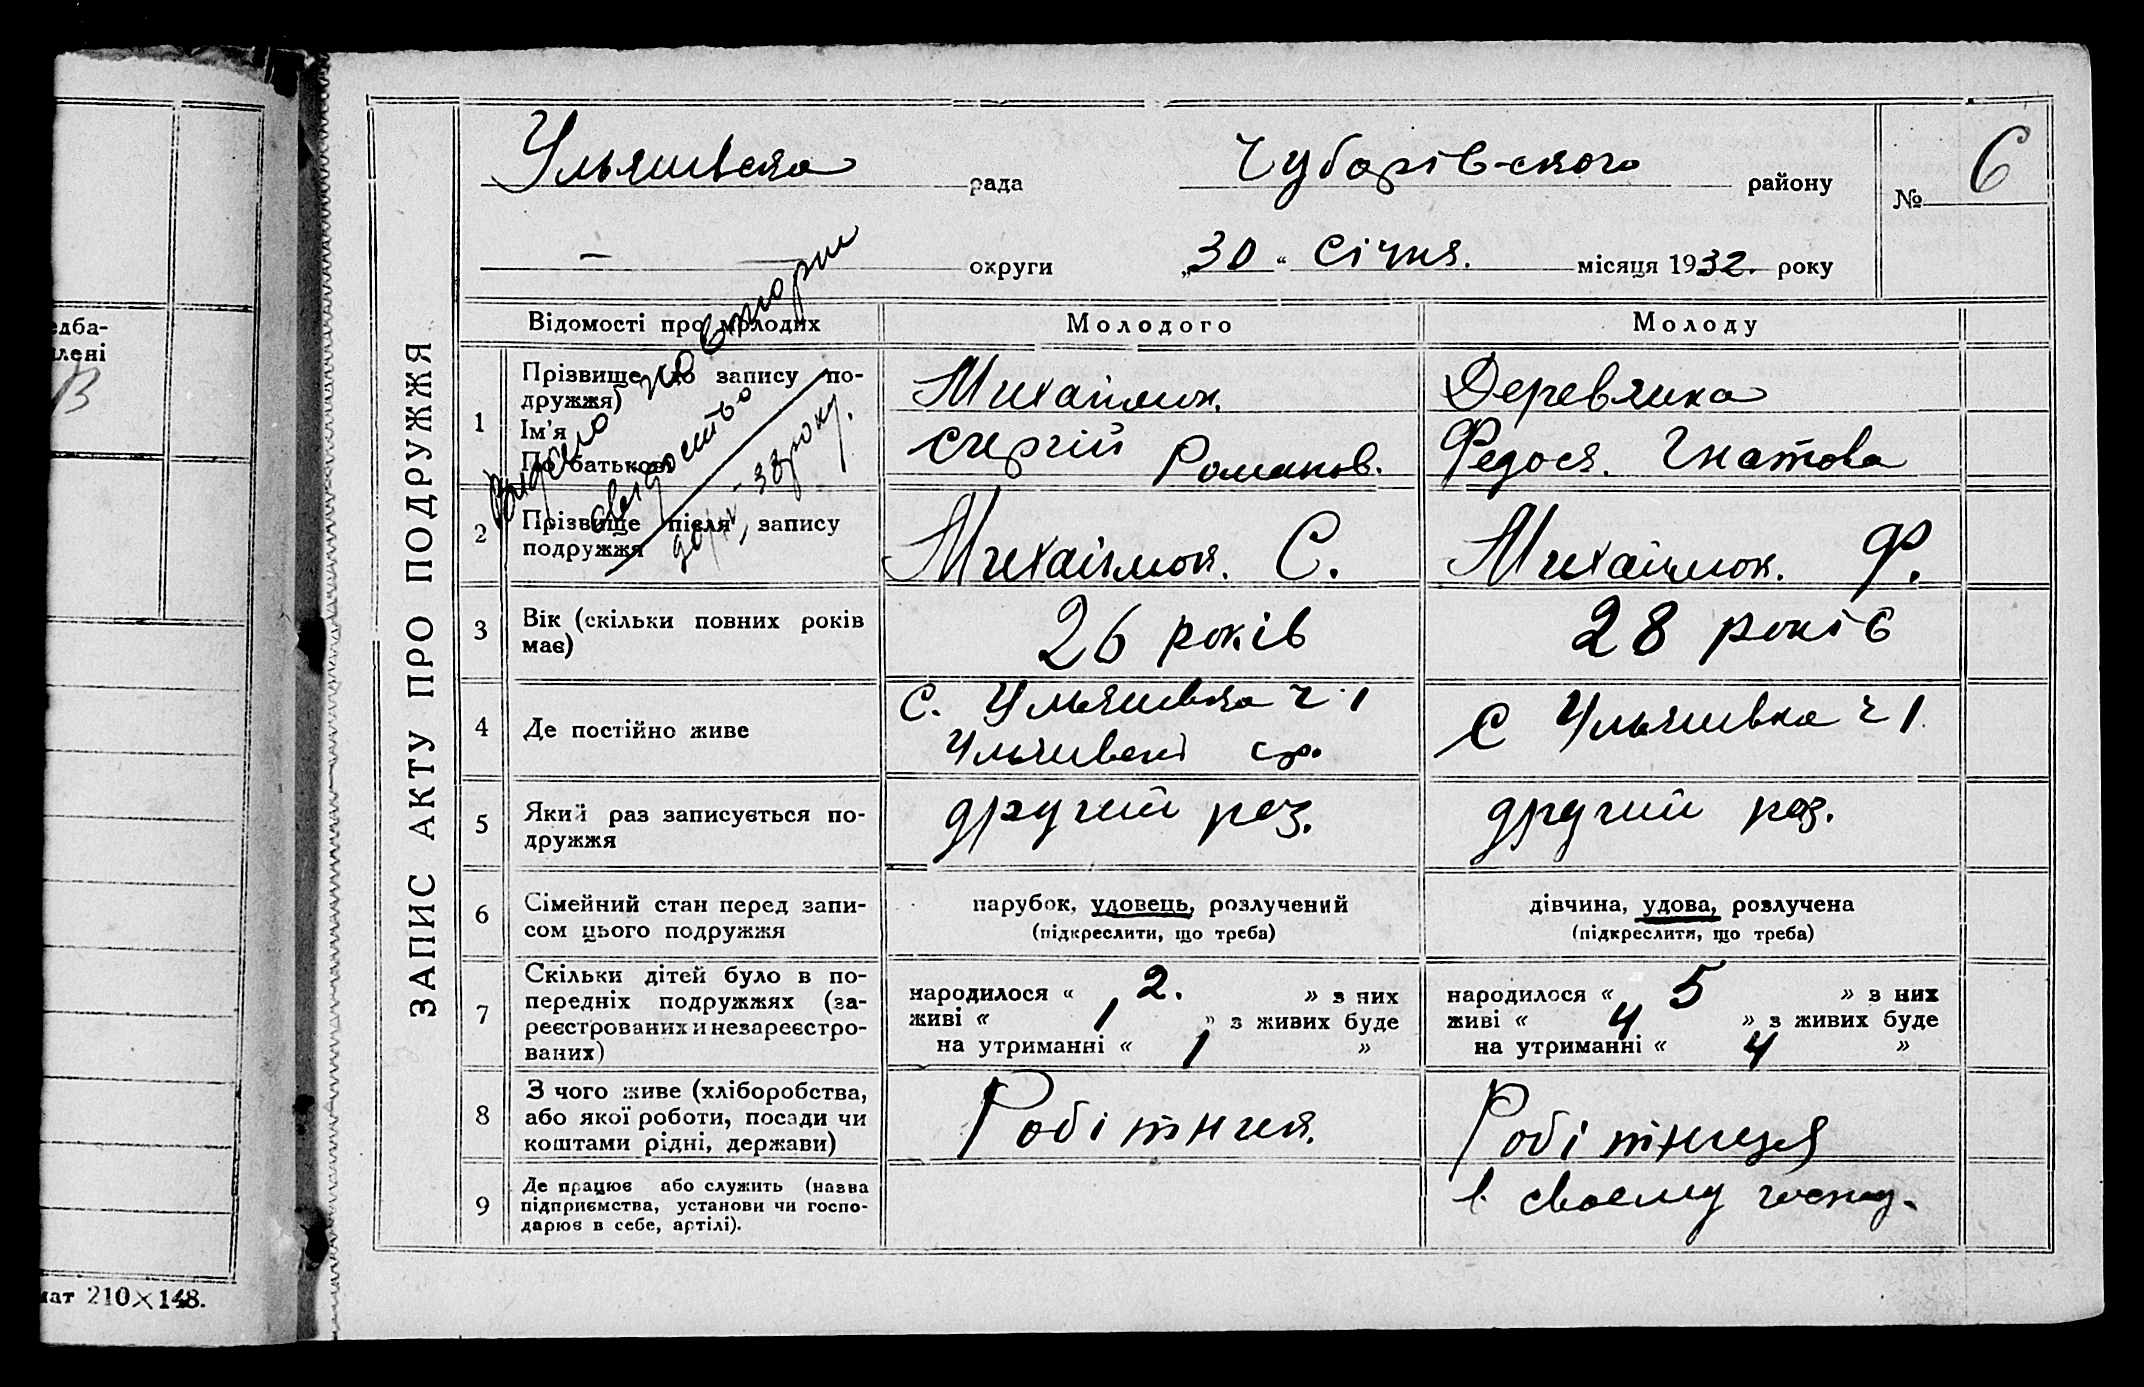 Ульяшівська рада Чубарівського району № 6
— округи „30“ Січня. місяця 1932. року
ЗАПИС АКТУ ПРО ПОДРУЖЖЯ
Відомості про молодих Молодого Молоду
Видано повторн
свидоцтво
33 року.
1 Прізвище до запису по-
дружжя) Михайлюк. Деревянка
Ім'я
По батькові Сергій Романов. Федося. Гнатова
2 Прізвище після запису
подружжя Михайлюк. С. Михайлюк. Ф.
3 Вік (скільки повних років
має) 26 років 28 років
4 Де постійно живе
с. Ульяшівка ч 1
Ульяшівсьі с/р.
с Ульяшівка ч 1.
5 Який раз записується по-
дружжя другий раз. другий раз.
6 Сімейний стан перед запи-
сом цього подружжя
парубок, удовець, розлучений
(підкреслити, що треба)
дівчина, удова, розлучена
(підкреслити, що треба)
7 Скільки дітей було в по-
передніх подружжях (за-
реєстрованих и незареєстро-
ваних)
народилося « 2. » з них
живі « 1 » з живих буде
на утриманні « 1 »
народилося « 5 » з них
живі « 4 » з живих буде
на утриманні « 4 »
8 З чого живе (хліборобства,
або якої роботи, посади чи
коштами рідні, держави)
Робітник. Робітниця
9 Де працює або служить (назва
підприємства, установи чи госпо-
дарює в себе, артілі).
в своему господ.
едба-
лені
мат 210×148.